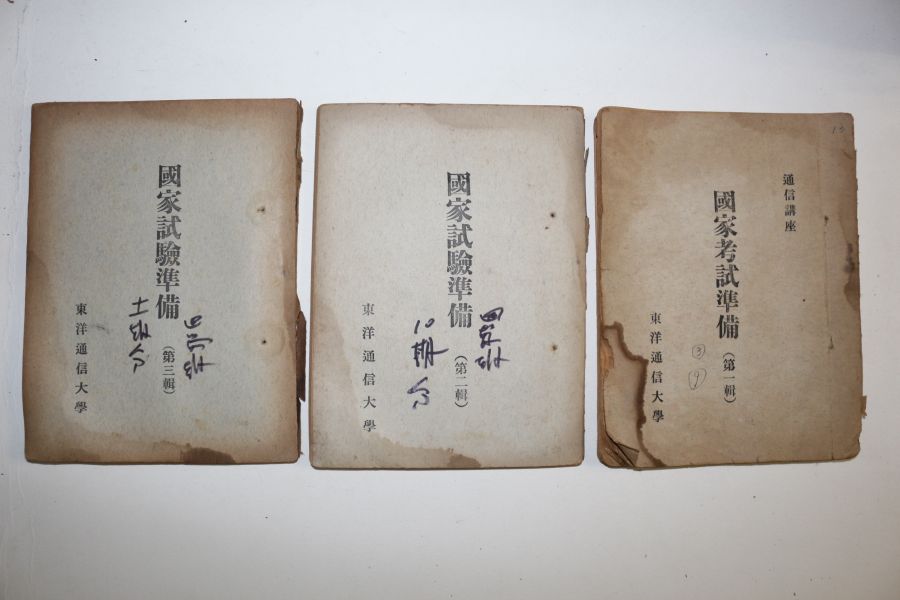 通信講座
國家考試準備(第一輯)
東洋通信大學
13
③
⑨
國家試驗準備(第二輯)
東洋通信大學
國家試驗準備(第三輯)
東洋通信大學